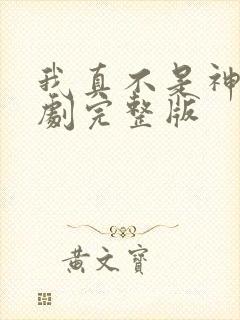 我真不是神
劇完整版
黃文寶